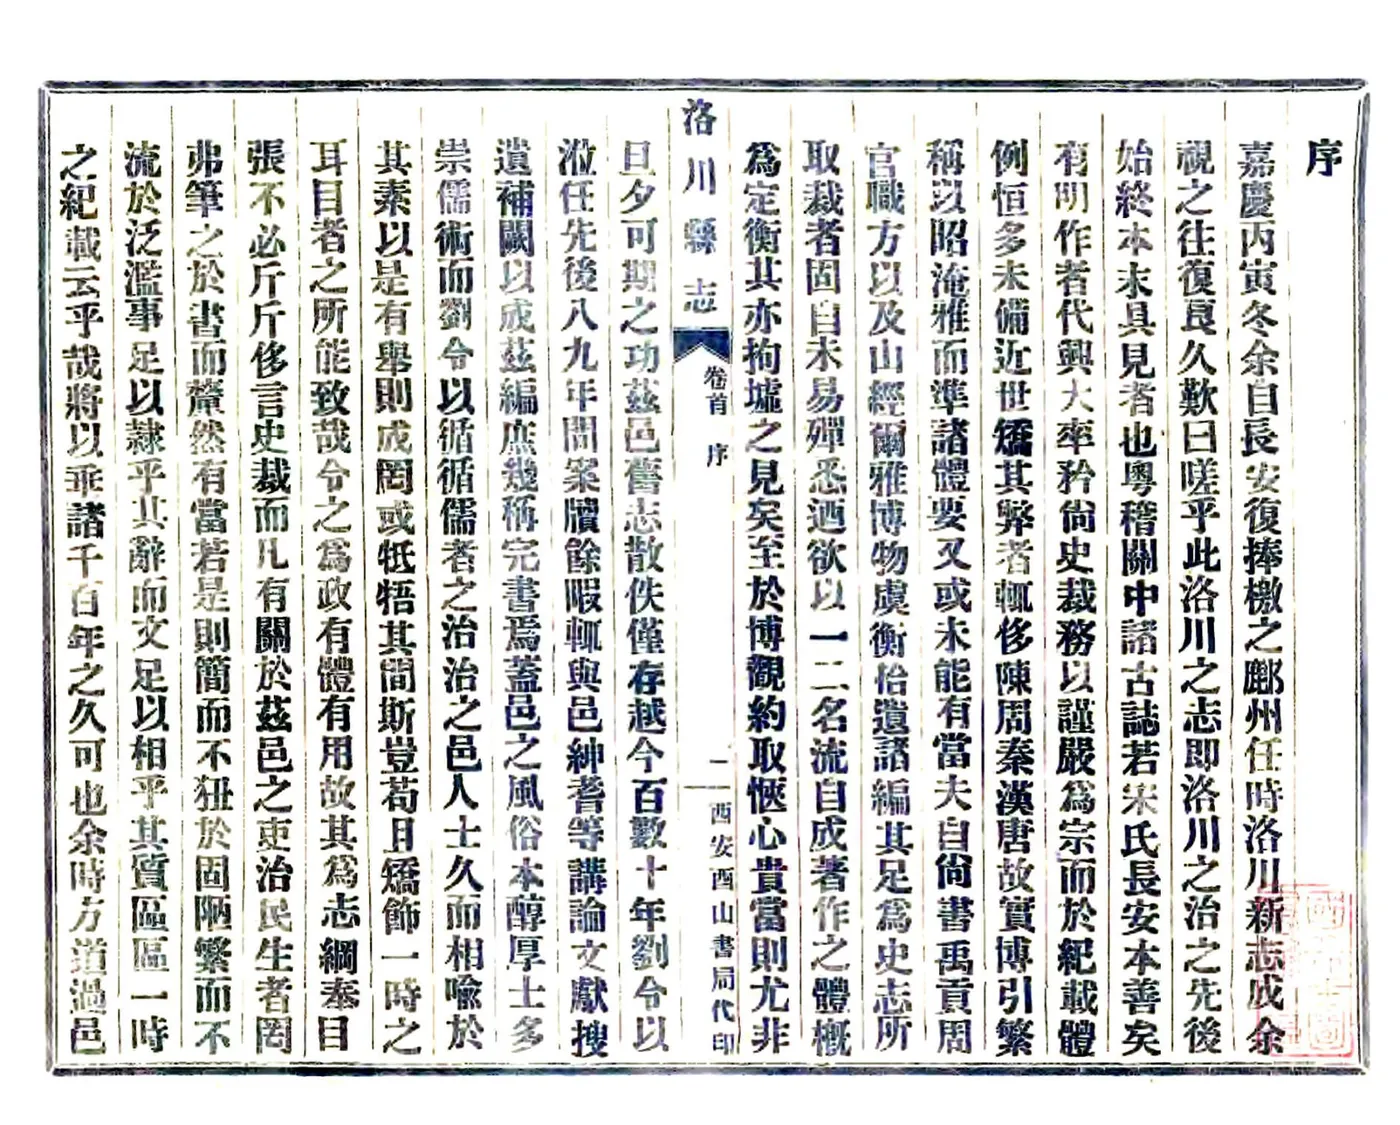 序
嘉慶丙寅冬余自長安復捧檄之鄜州任時洛川新志成余
視之往復良久歎曰嗟乎此洛川之志即洛川之治之先後
始終本末具見者也粵稽關中諸古誌若宋氏長安本善矣
有明作者代興大率矜尙史裁務以謹嚴爲宗而於紀載體
例恒多未備近世矯其弊者輒侈陳周秦漢唐故實博引繁
稱以昭淹雅而準諸體要又或未能有當夫自尙書禹貢周
官職方以及山經爾雅博物虞衡拾遺諸編其足爲史志所
取裁者固自未易殫悉迺欲以一二名流自成著作之體概
爲定衡其亦拘墟之見矣至於博觀約取愜心貴當則尤非
洛川縣志
卷首 序
二
西安酉山書局代印
旦夕可期之功茲邑舊志散佚僅存越今百數十年劉令以
涖任先後八九年間案牘餘暇輒與邑紳耆等講論文獻搜
遺補闕以成茲編庶幾稱完書焉蓋邑之風俗本醇厚士多
崇儒術而劉令以循循儒者之治治之邑人士久而相喩於
其素以是有舉則成罔或牴牾其間斯豈苟且矯飾一時之
耳目者之所能致哉令之爲政有體有用故其爲志綱舉目
張不必斤斤侈言史裁而凡有關於茲邑之吏治民生者罔
弗筆之於書而釐然有當若是則簡而不狃於固陋繁而不
流於泛濫事足以隷乎其辭而文足以相乎其質區區一時
之紀載云乎哉將以垂諸千百年之久可也余時方道過邑